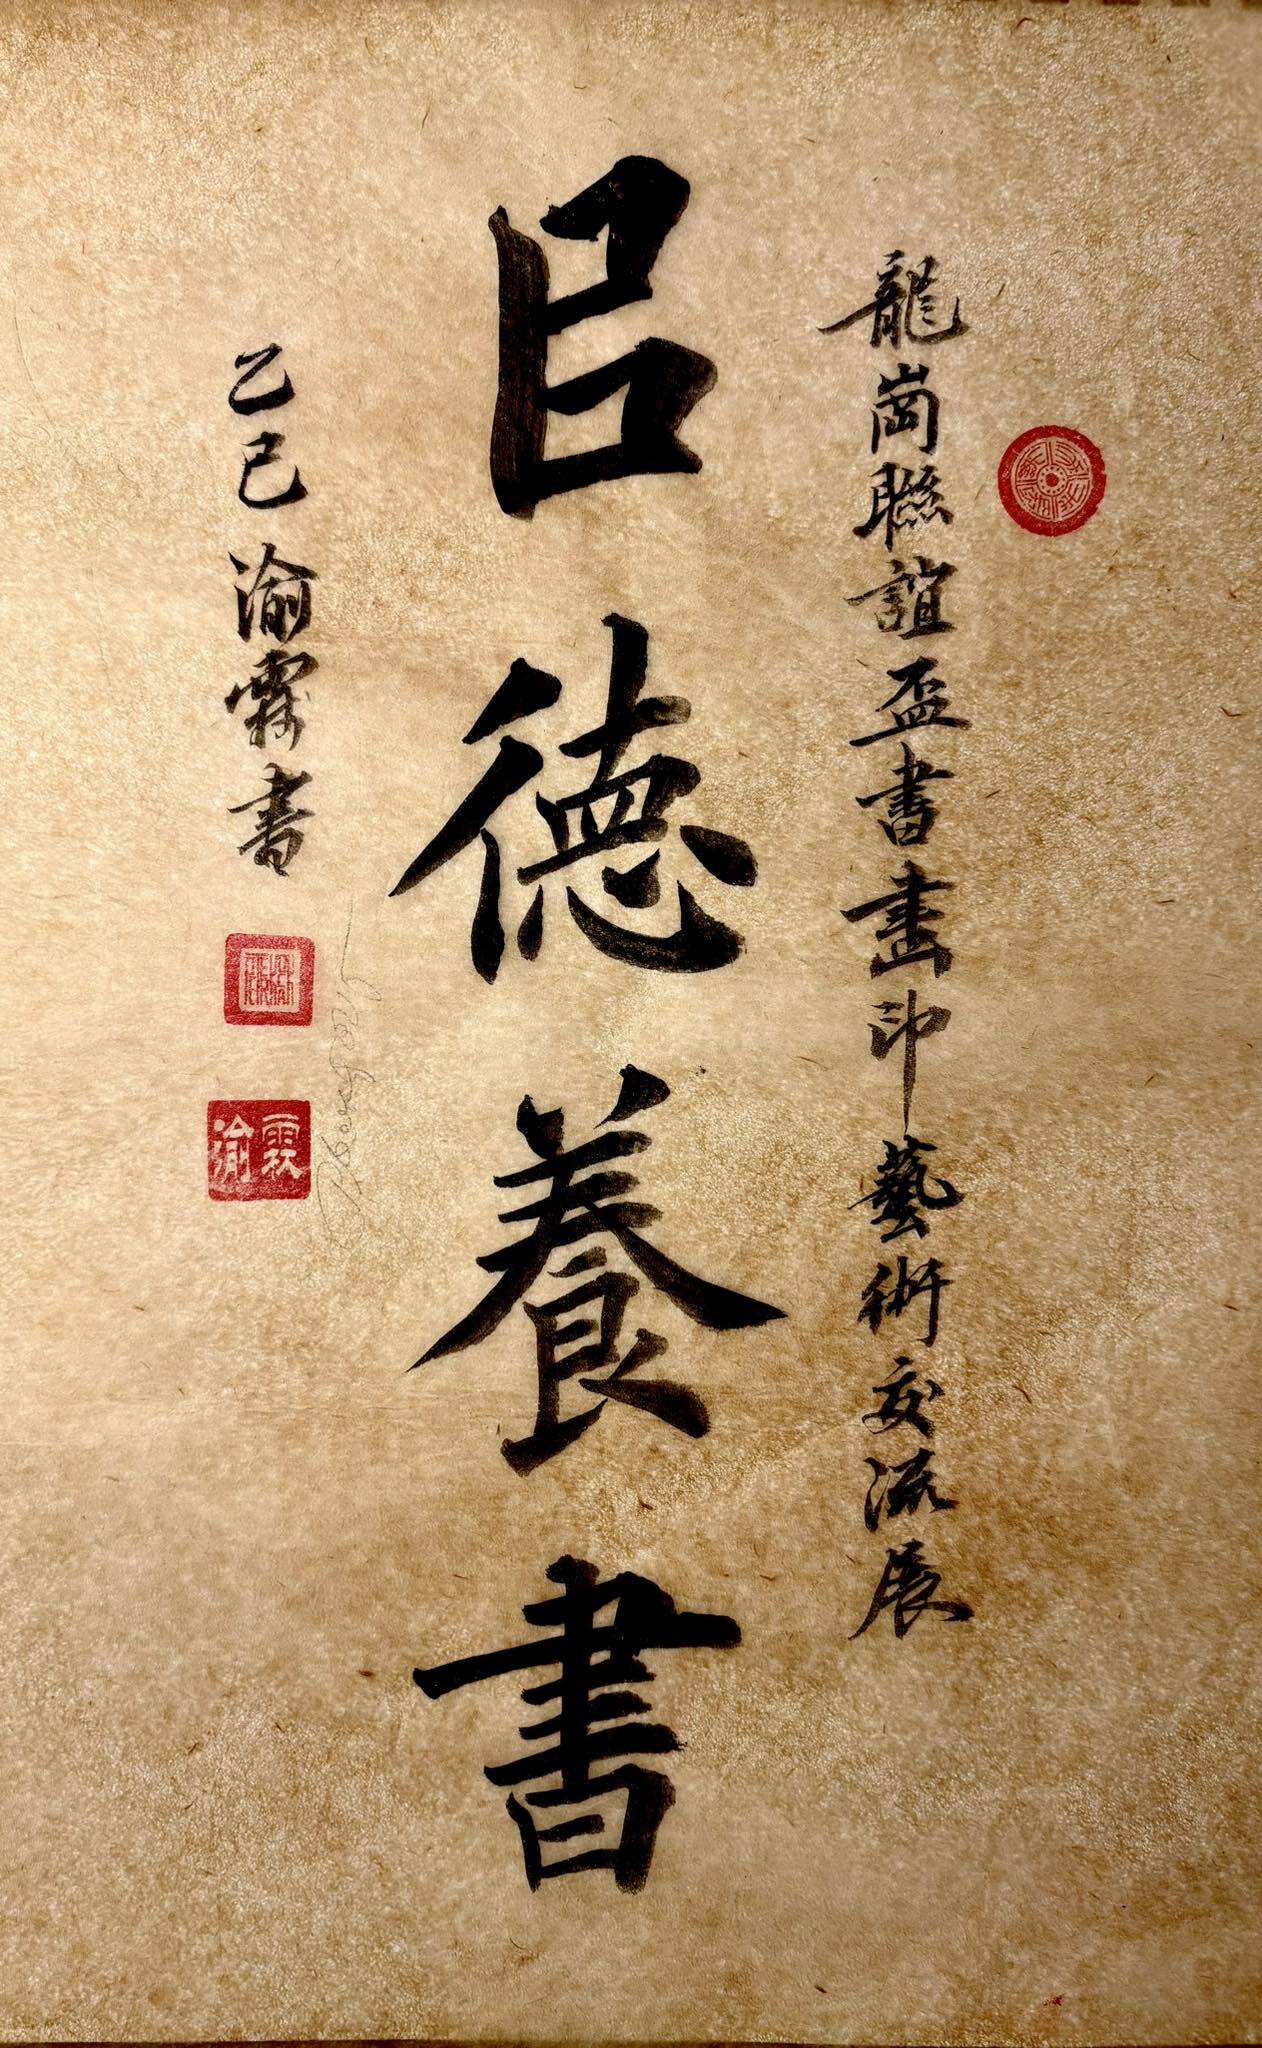 龍崗聯誼盃書畫印藝術交流展
㠯德養書
乙巳 渝霖書
霖渝